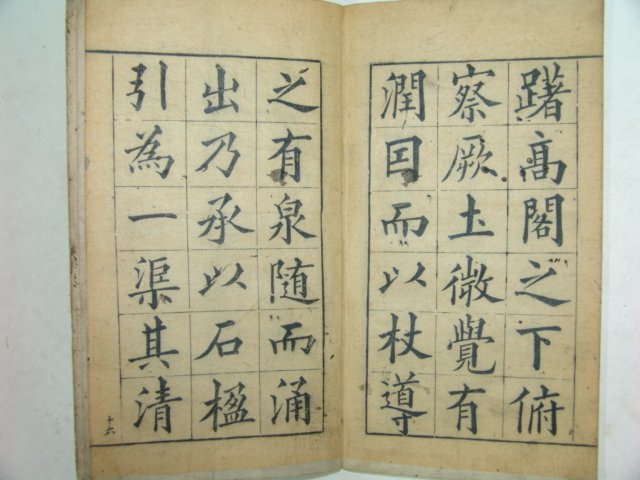 躇高閣之下俯
察厥土微覺有
潤因而以杖導
之有泉随而涌
出乃承以石楹
引為一渠其清
十六